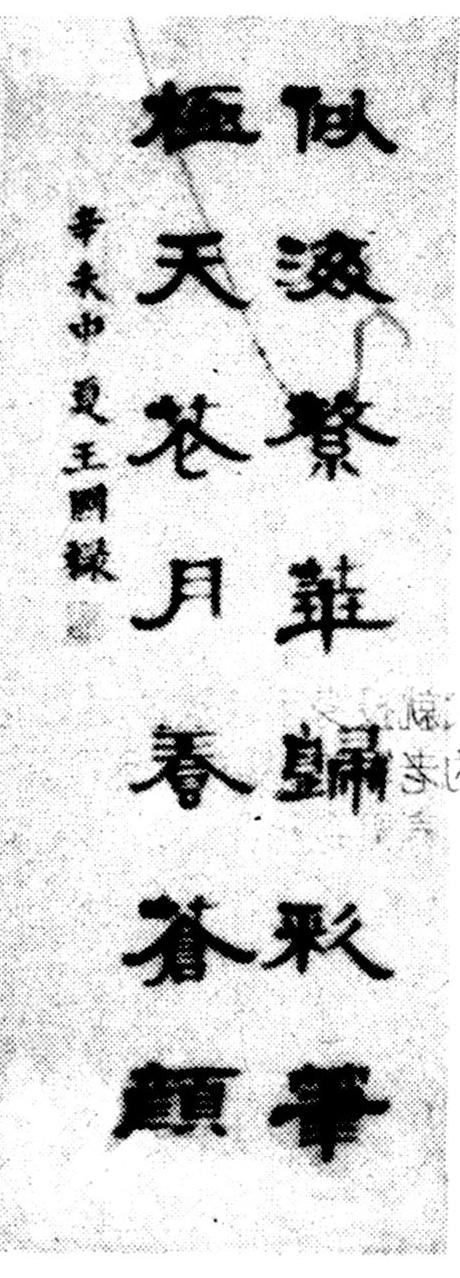 似海繁華歸彩筆
極天花月春蒼顏
辛中夏王
老